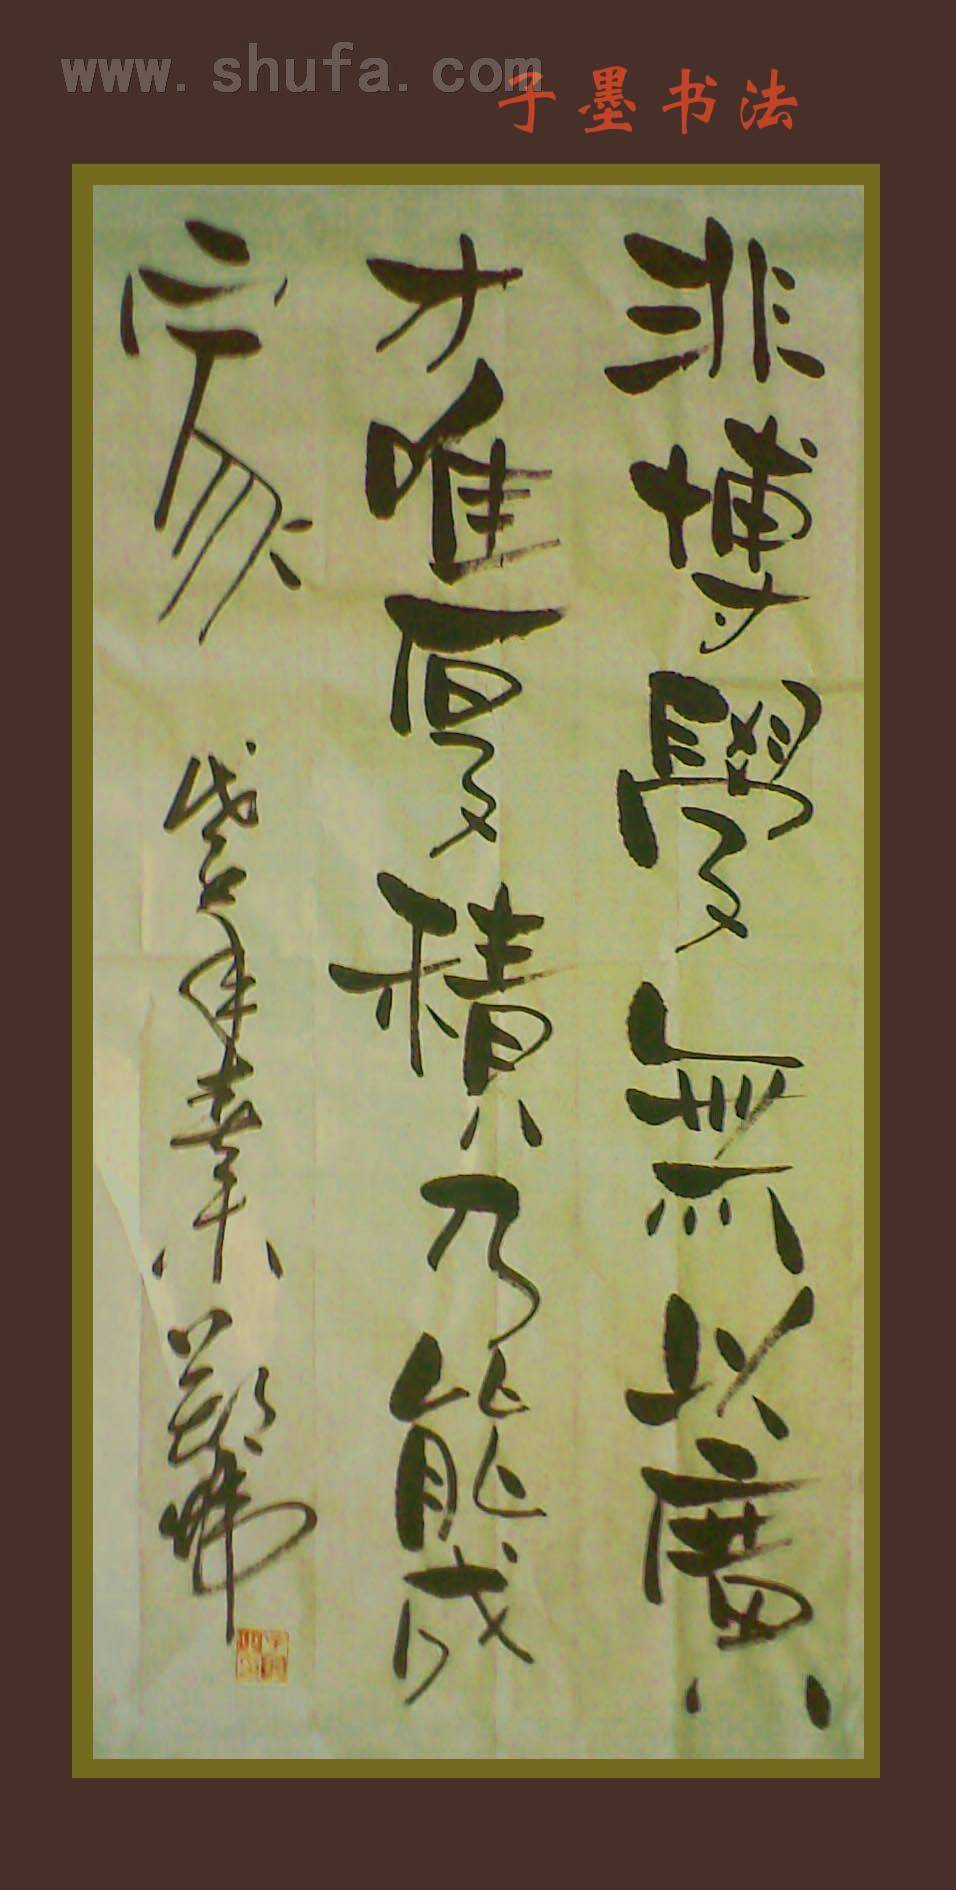 www.shufa.com
子墨书法
非博學無以廣
才唯厚積乃能成
家
年